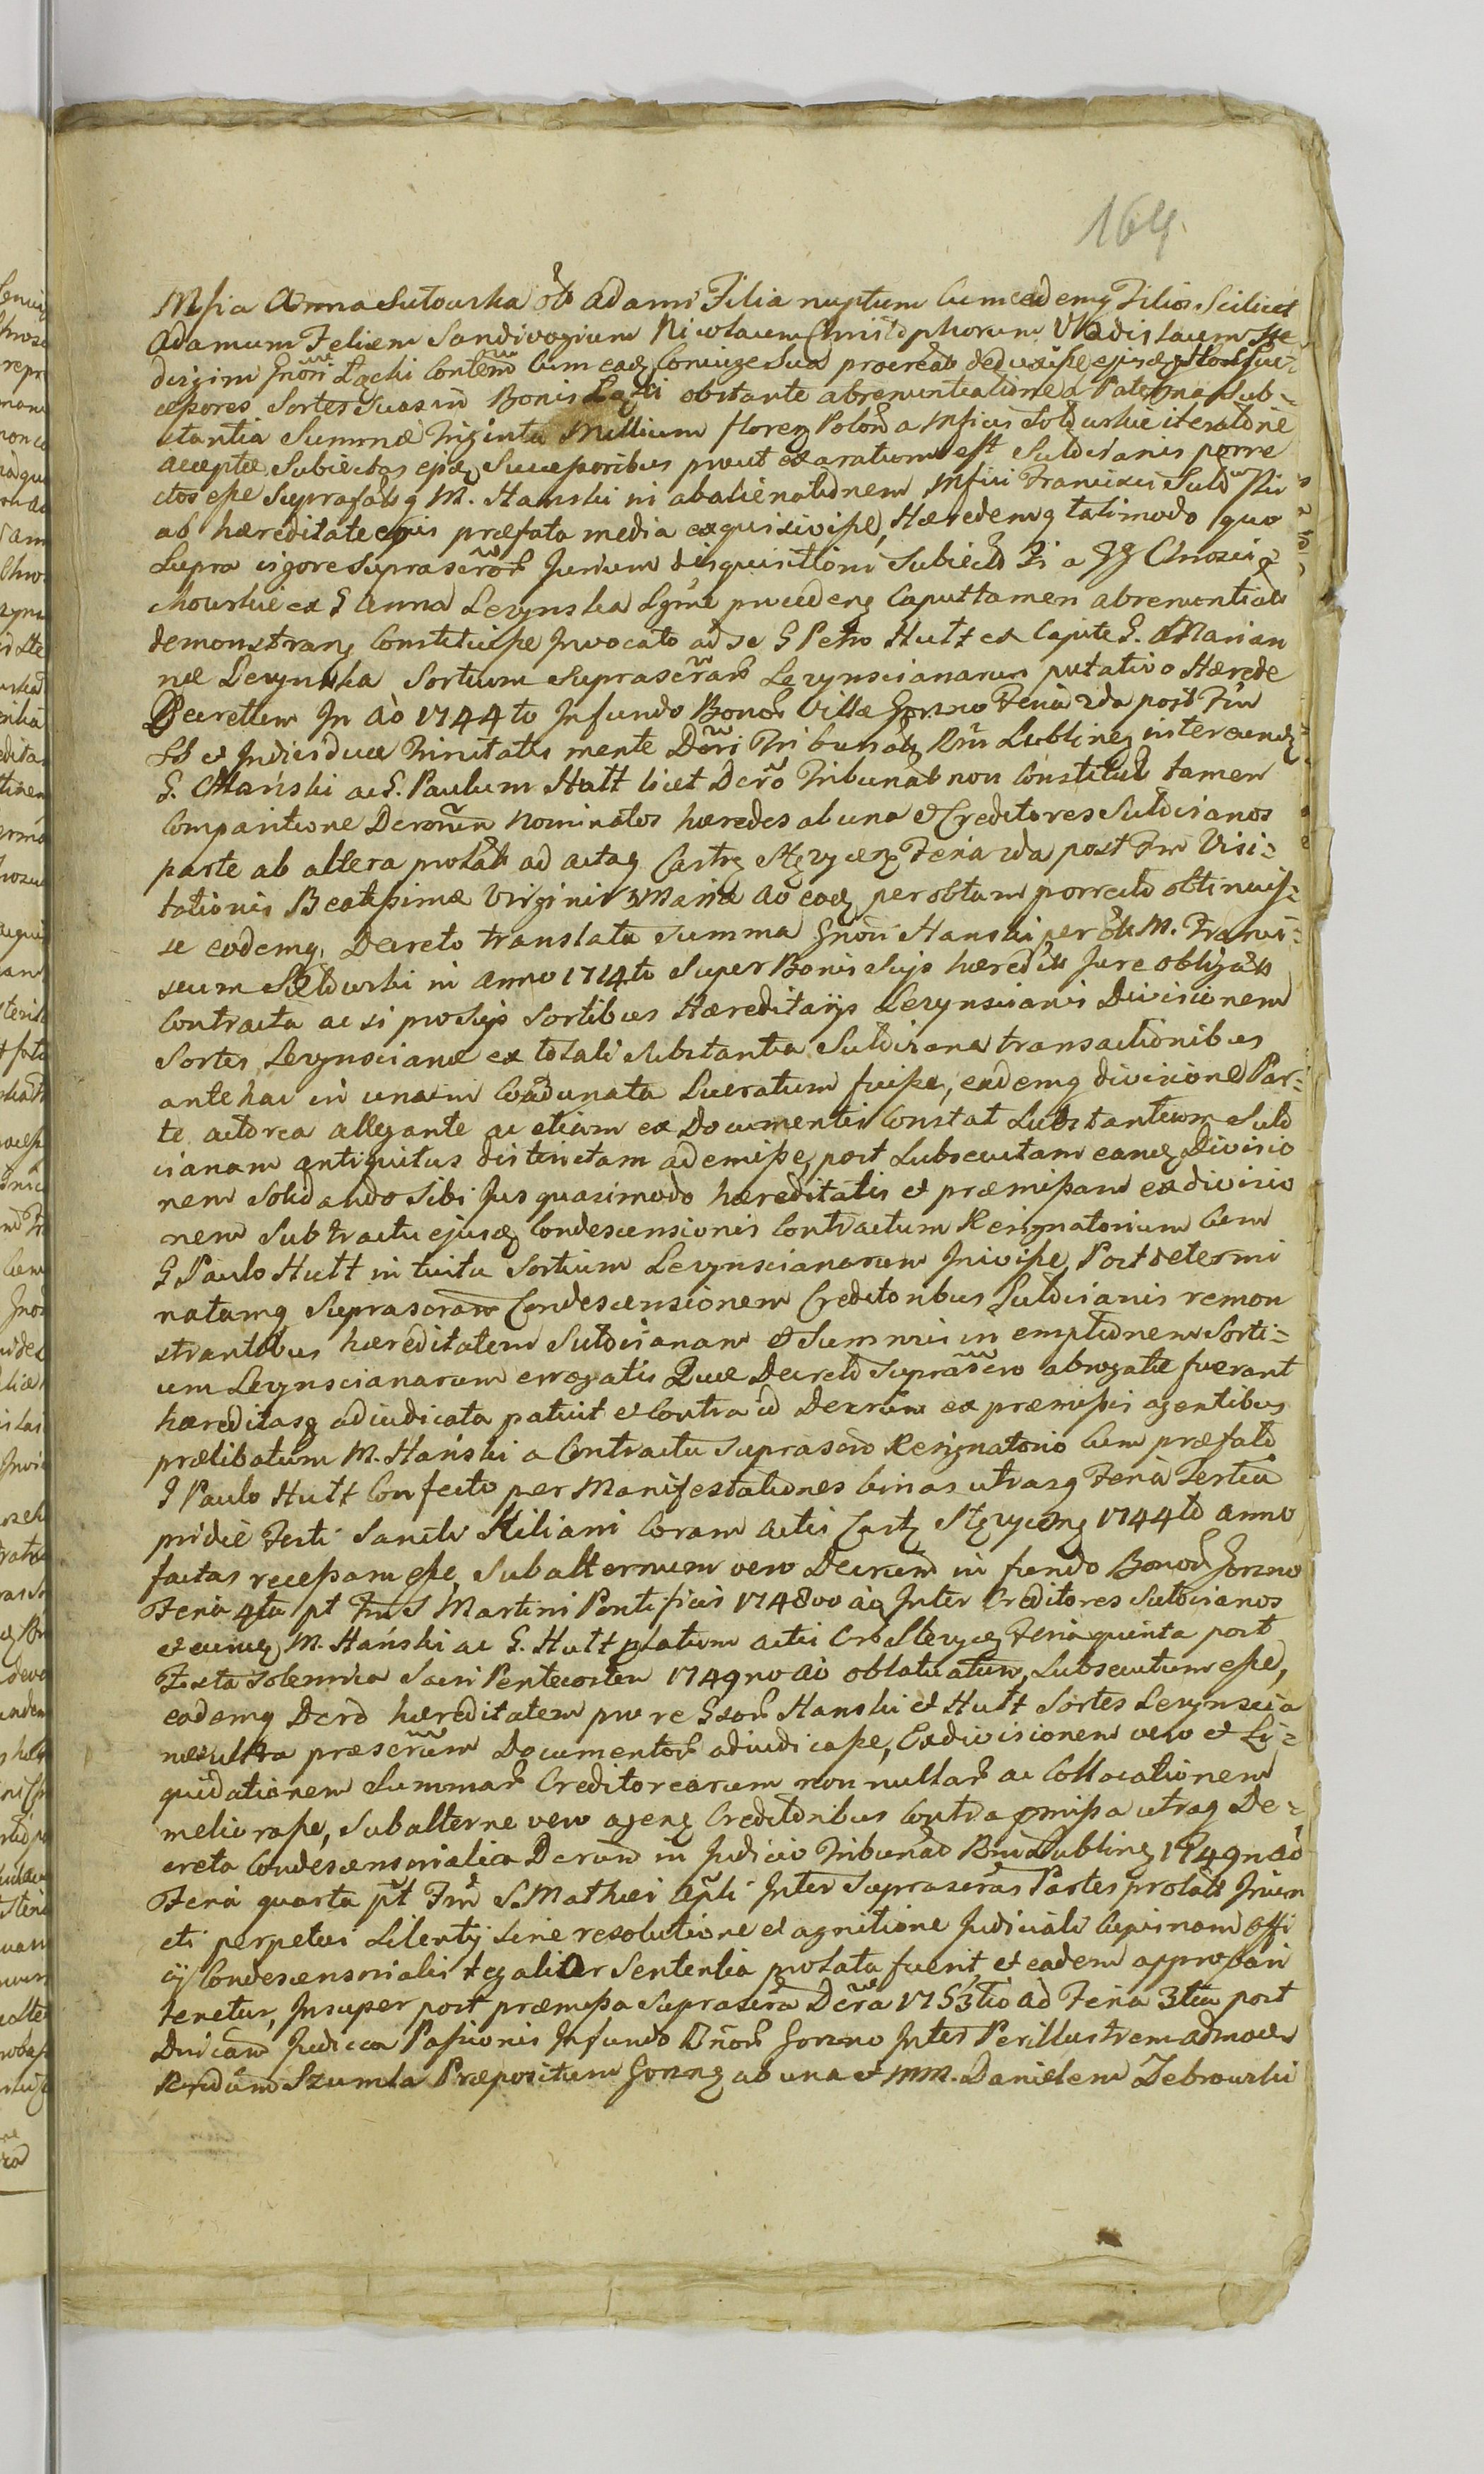 164.
Mfica Anna Sutowska ol̃ Adami Filia nuptum cum eademq Filios Scilicet
Adamum Felicem Sandivogium Nicolaum Christophorum Vladislaum
divisim Gnõri Łącki cum eadq Coniuge Sua procreatos deduxiſse
ceſsores Sortes Suas in Bonis obstante abrenuntiatione a Paterna Sub=
stantia Summæ Triginta Millium floreq Polon a Mficis iteratone
acceptæ Subiectas ejdq Succeſsoribus prout exaratum est Suldisianis porre
ctos eſse Suprafatq M. Hanski in abalienationem Mfici Francisci
ab hæreditate ejus præfata media exquisiviſse, Hæredemq talimodo quo
Supra vigore Suprascr̃or Jurium disquisitioni Subiecto a GG
chowskie ex G Anna Lezynska Lg̃me procedenq Caput tamen abrenuntiatio
demonstranq Constituiſse Invocato ad se G Petro Hutt ex Capite G. Marian
næ Lezynska Sortium Suprascr̃ar Lezynscianarum putativo Hærede
Decretum In Aõ 1744to In fundo Bonor Villæ Gonzno Feria 2da post Fm
SS et Individuæ Trinitatis mente Dc̃ri Tribunalq Rni Lublineq inter eundq
G. Hański ac G. Paulum Hutt licet Dcr̃o Tribunal non Constituto tamen
Comparitione nominatos hæredes ab una et Creditores Suldisianos
parte ab altera prolat ad actaq Castrq Stęzycenq Feria 2da post Fm Visi=
tationis Beatiſsimæ Virginis Maria Aõ eodq per oblatam porrecto obtinuiſ=
se eodemq Decreto translata Summa Gnõri Hanski per ol M. Francis=
cum in Anno 1714to Super Bonis Sujs hæredits Jure obligats
Contracta ac si pro Sujs Sortibus Hæreditarijs Lezynscianis Divisionem
Sortis Lezynscianæ ex totali Substantia Suldisiana transactionibus
ante hac in unam Coadunata Lucratum fuiſse, eademq divisione Par=
te actorea allegante ac etiam ex Documentis Constat Substantiam Suld
cianam antiquitus distinctam ademiſse, post Subsecutam eandq Divisio
nem Solidando Sibi Jus quasimodo hæreditatis et præmiſsam exdivisio
nem Sub tractu ejusdq Condescensionis Contractum Resignatorium Cum
G Paulo Hutt intuitu Sortium Lezynscianarum Iniviſse, Post determi
natamq Suprascram Condescensionem Creditoribus Suldisianis remon
strantibus hæreditatem Suldisianam et Summis in emptionem Sorti=
um Lezynscianarum errogatis Quæ Decreto Suprascr̃o abrogatæ fuerant
hæreditasq adiudicata patuit et Contra id Decr̃um ex præmiſsis agentibus
prælibatum M. Hański a Contractu Suprascro Resignatorio Cum præfato
G Paulo Hutt Confecto per Manifestationes binas utrasq Feria Tertia
pridie Festi Sancti Kiliani Coram Actis Castrq Stęzycenq 1744to Anno
factas receſsam eſse, Subalternum vero Decrum in fundo Bonor Gonzno
Feria 4ta pt Fm S Martini Pontificis 1748vo aõ Inter Creditores Suldisianos
et eundq M. Hański ac G. Hutt platum Actis Feria quinta post
Festa Solennia Sacri Pentecostes 1749no aõ oblatuatum, Subsecutum eſse,
eodemq Dcro hæreditatem pro re Gsor Hanski et Hutt Sortes Lezynscia
nas ultra præscr̃um Documentor adiudicaſse, Exdivisionem vero et Li=
quidationem Summar Creditorearum non nullar ac Collocationem
melioraſse, Subalterne vero agenq Creditoribus Contra pmiſsa utraq De=
creta Condescensorialia Decrum in Judicio Tribunal Rni Lublinq 1749no aõ
Feria quarta pt Fm S. Mathæi Apli Inter Suprascr̃as Partes prolato Inun
cti perpetui Silentij Sine resolutione et agnitione Judiciali Cujusnam offi
cij Condescensorialis legaliter Sententia prolata fuerit et eadem approbari
tenetur, Insuper post præmiſsa Suprascr̃a Dcr̃a 1753tio aõ Feria 3tia post
Dnicam Judica Paſsionis In fundo Bnõr Gonzno Inter Perillustrem admodum
Rndum Szumla Præpositum Gonznq ab una et MM. Danielem Zebrowski